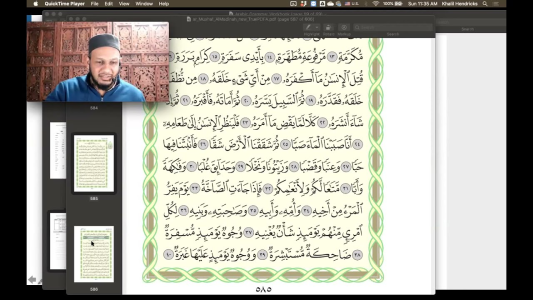 QuickTime Player File Edit View Window Help
100% Sun 11:35 AM Khalil Hendricks
مُّكَرَّمَةٍ ١٣ مَّرْفُوعَةٍ مُّطَهَّرَةٍ ١٤ بِأَيْدِى سَفَرَةٍ ١٥ كِرَامٍۭ بَرَرَةٍ
قُتِلَ ٱلْإِنسَٰنُ مَآ أَكْفَرَهُۥ ١٧ مِنْ أَىِّ شَىْءٍ خَلَقَهُۥ ١٨ مِن نُّطْفَةٍ
خَلَقَهُۥ فَقَدَّرَهُۥ ١٩ ثُمَّ ٱلسَّبِيلَ يَسَّرَهُۥ ٢٠ ثُمَّ أَمَاتَهُۥ فَأَقْبَرَهُۥ ٢١ ثُمَّ إِذَا
شَآءَ أَنشَرَهُۥ ٢٢ كَلَّا لَمَّا يَقْضِ مَآ أَمَرَهُۥ ٢٣ فَلْيَنظُرِ ٱلْإِنسَٰنُ إِلَىٰ طَعَامِهِۦٓ
٢٤ أَنَّا صَبَبْنَا ٱلْمَآءَ صَبًّا ٢٥ ثُمَّ شَقَقْنَا ٱلْأَرْضَ شَقًّا ٢٦ فَأَنۢبَتْنَا فِيهَا
حَبًّا ٢٧ وَعِنَبًا وَقَضْبًا ٢٨ وَزَيْتُونًا وَنَخْلًا ٢٩ وَحَدَآئِقَ غُلْبًا ٣٠ وَفَٰكِهَةً
وَأَبًّا ٣١ مَّتَٰعًا لَّكُمْ وَلِأَنْعَٰمِكُمْ ٣٢ فَإِذَا جَآءَتِ ٱلصَّآخَّةُ ٣٣ يَوْمَ يَفِرُّ
ٱلْمَرْءُ مِنْ أَخِيهِ ٣٤ وَأُمِّهِۦ وَأَبِيهِ ٣٥ وَصَٰحِبَتِهِۦ وَبَنِيهِ ٣٦ لِكُلِّ
ٱمْرِئٍ مِّنْهُمْ يَوْمَئِذٍ شَأْنٌ يُغْنِيهِ ٣٧ وُجُوهٌ يَوْمَئِذٍ مُّسْفِرَةٌ
٣٨ ضَاحِكَةٌ مُّسْتَبْشِرَةٌ ٣٩ وَوُجُوهٌ يَوْمَئِذٍ عَلَيْهَا غَبَرَةٌ ٤٠
٥٨٥